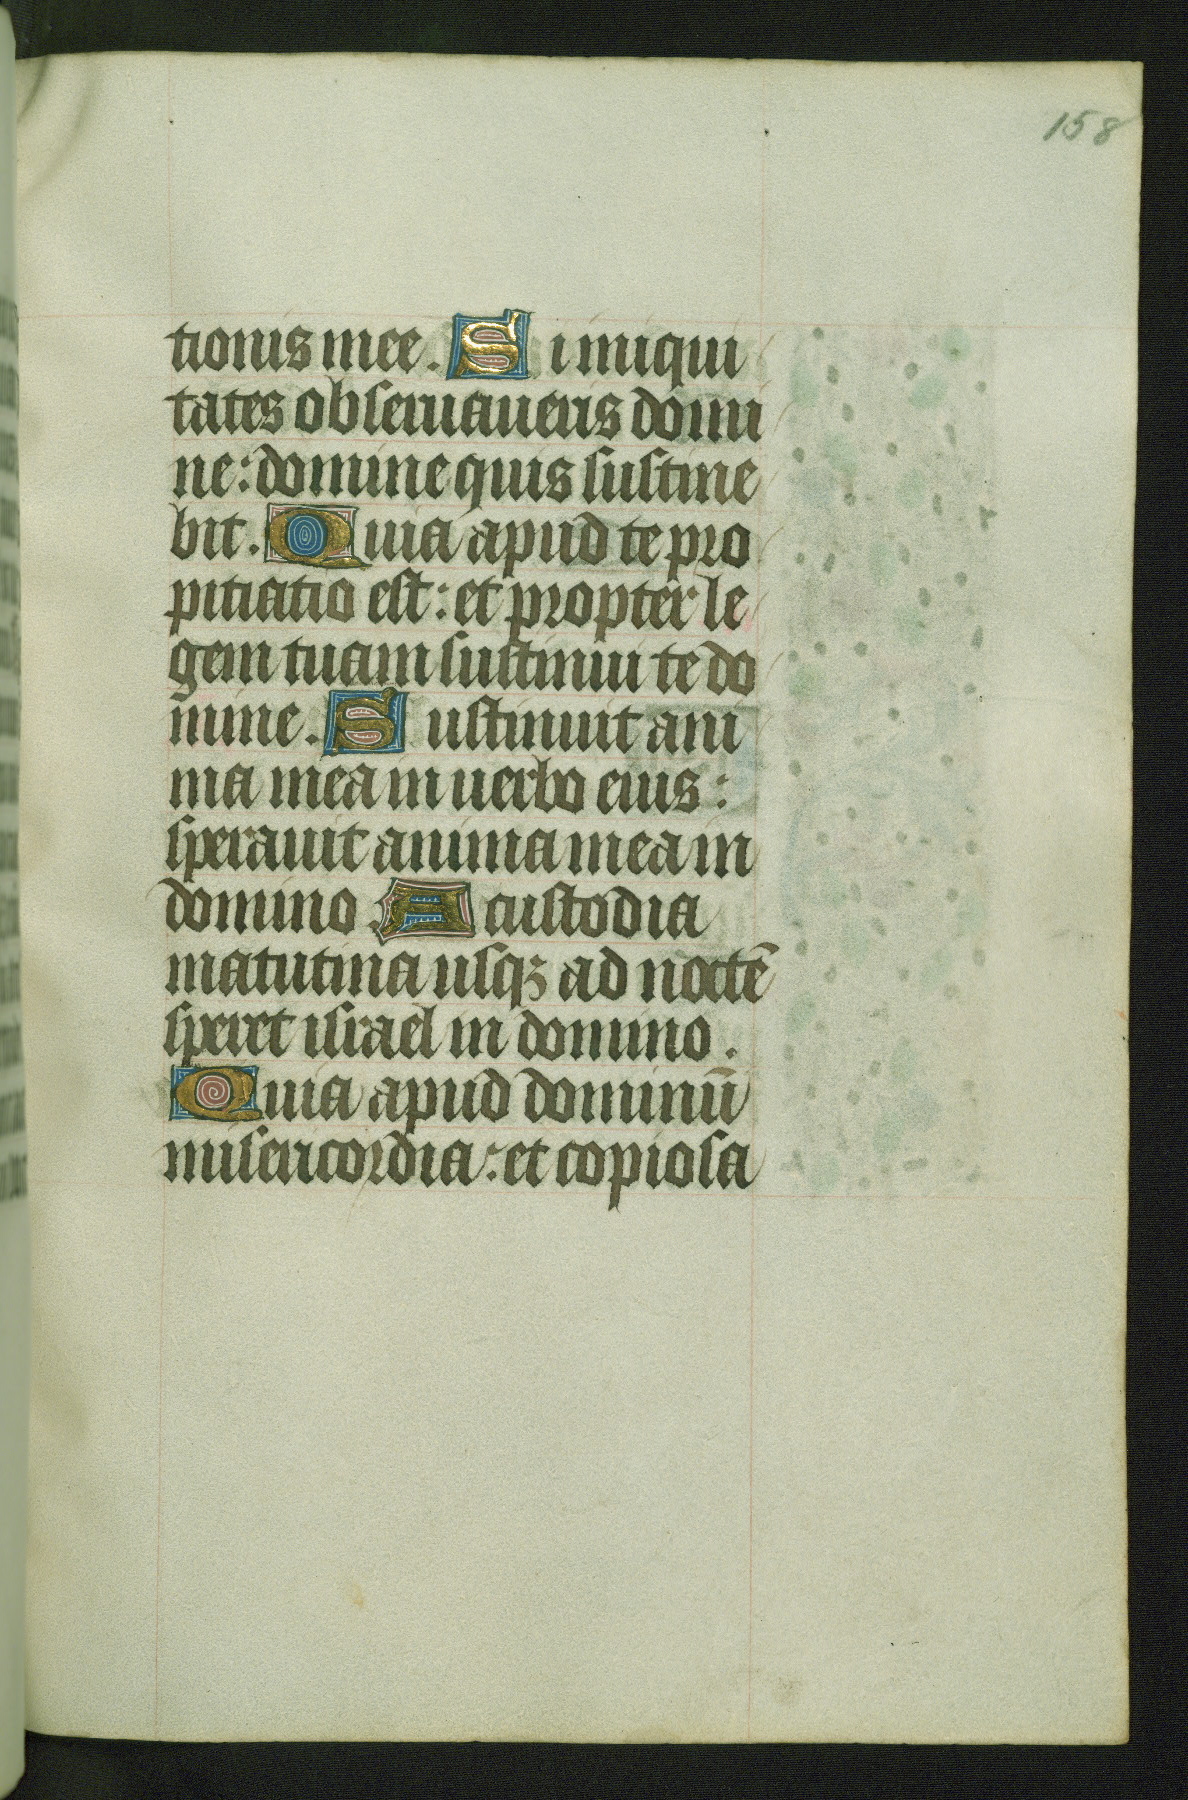 158
tionis mee. Si iniqui
tates obseruaueris domi
ne: domine quis sustine
bit. Quia apud te pro
pitiatio est: et propter le
gem tuam sustinui te do
mine. Sustinuit ani
ma mea in uerbo eius:
sperauit anima mea in
domino. A custodia
matutina usqꝫ ad noctē
speret israel in domino.
Quia apud dominū
misericordia: et copiosa